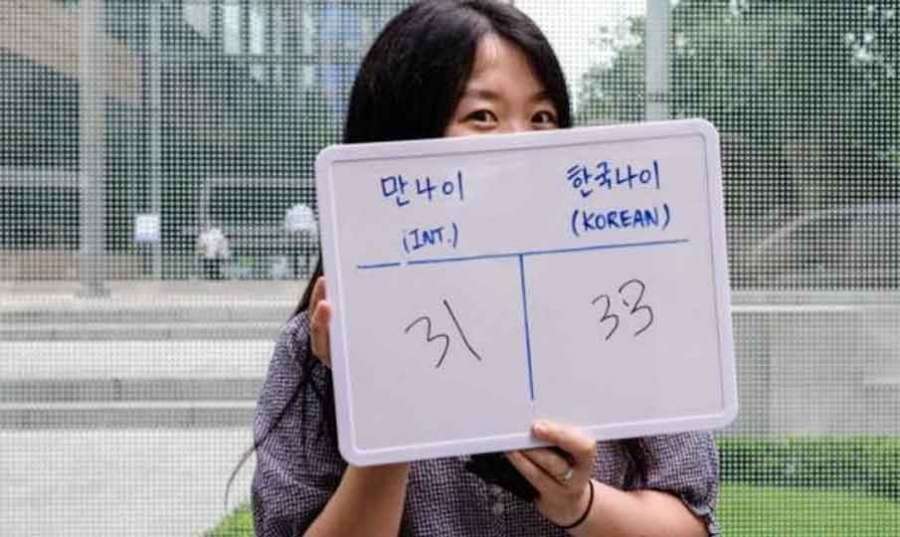 만나이 한국나이
(INT.) (KOREAN)
31 33